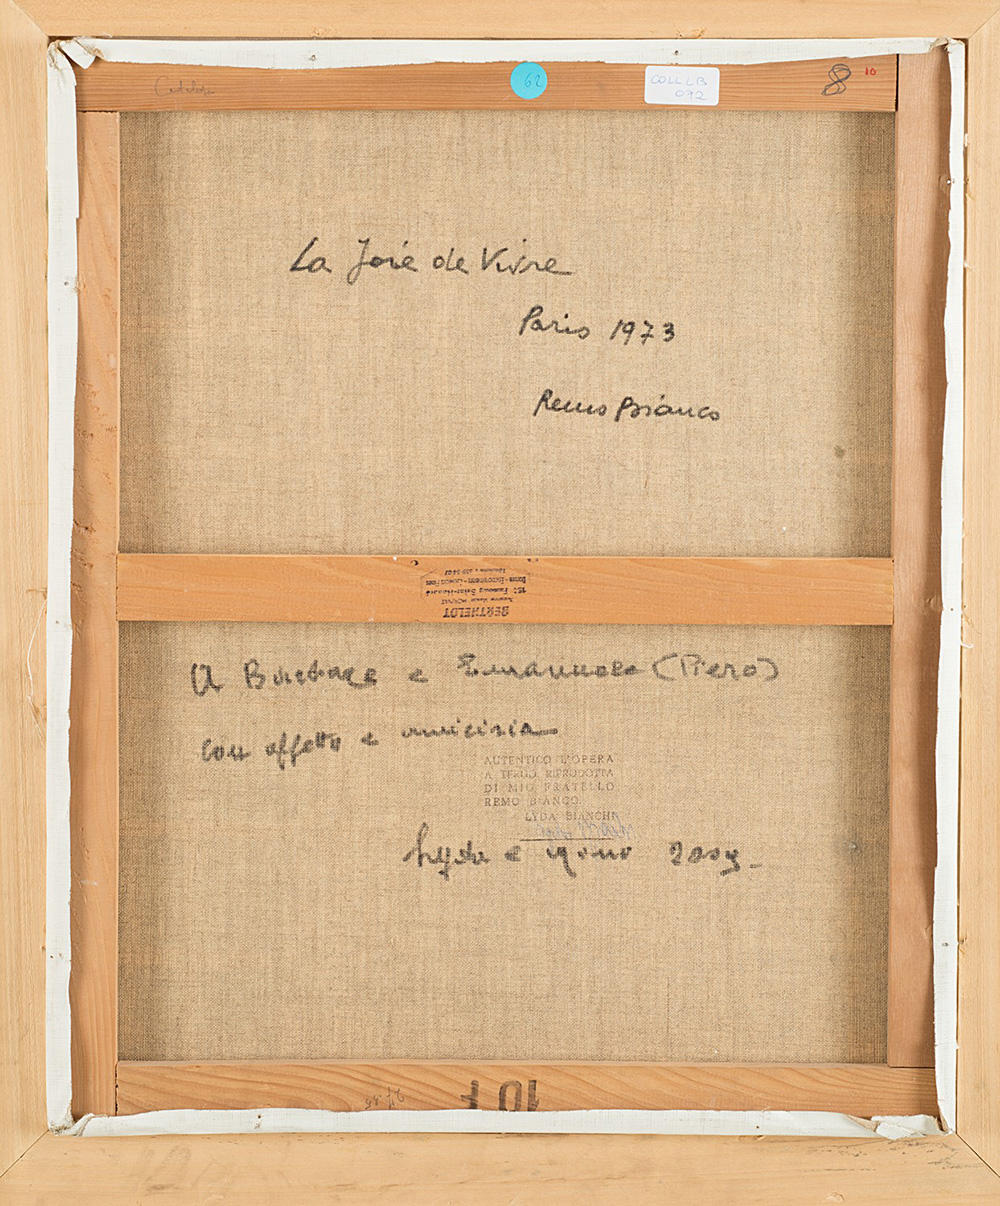 62
COLL LB
072
8
10
La Joie de Vivre
Paris 1973
Remo Bianco
BERTHELOT
184 Faubourg Saint-Honoré
A Barbara e Emanuele (Piero)
con affetto e amicizia
AUTENTICO L'OPERA
A TERGO RIPRODOTTA
DI MIO FRATELLO
REMO BIANCO
LYDA BIANCHI
Lyda e
10 F